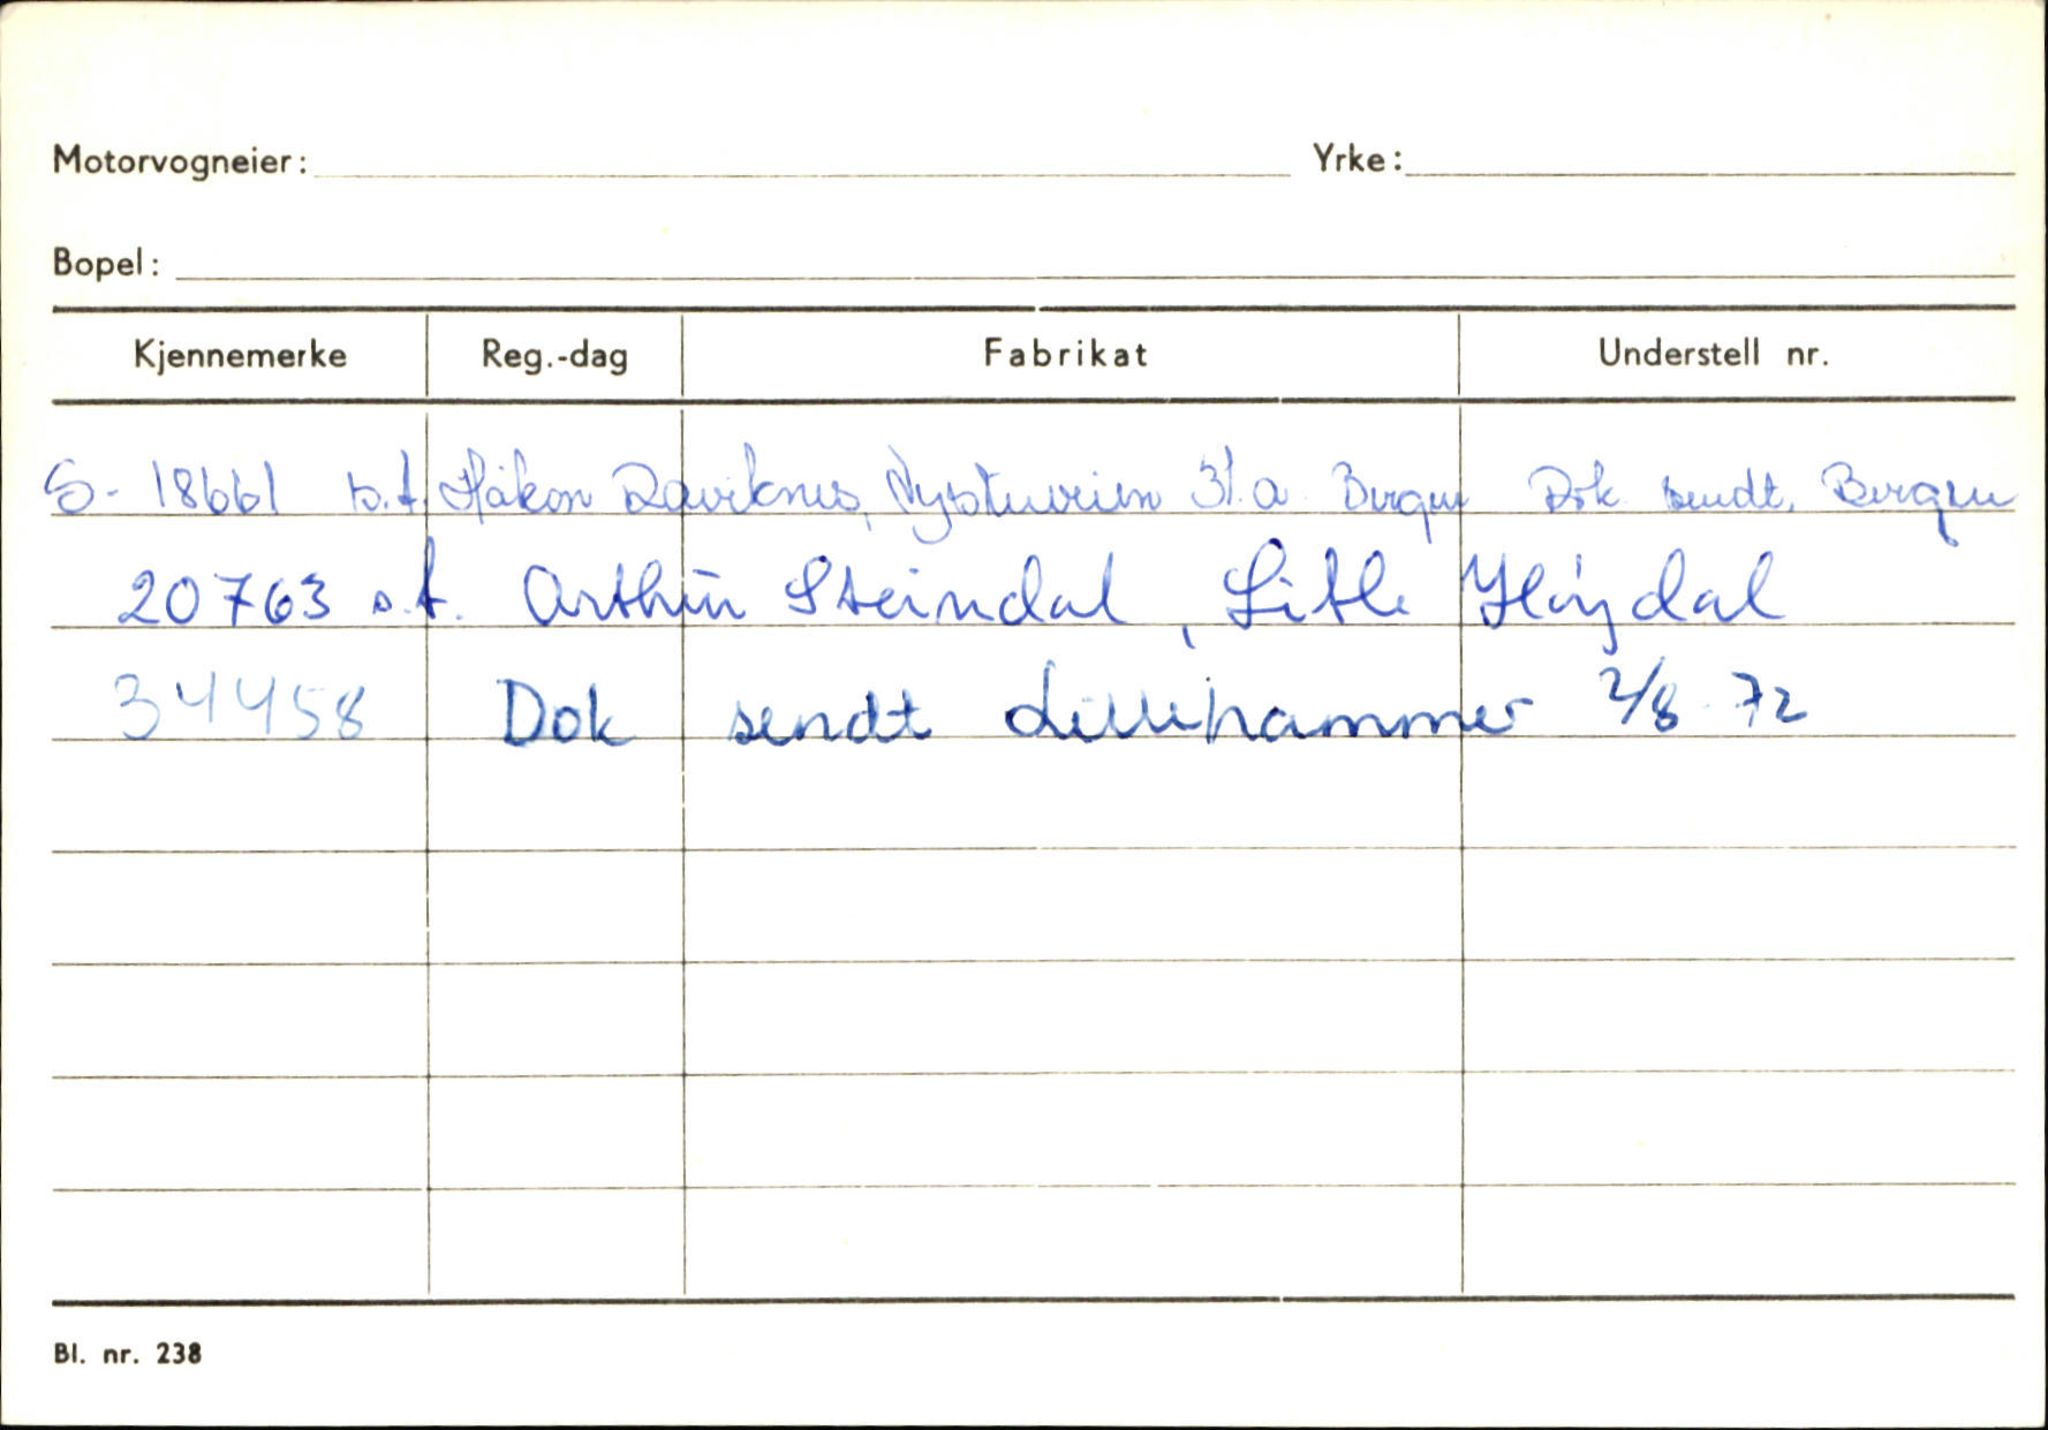 Motorvogneier: Yrke:
Bopel:
Kjennemerke Reg.-dag Fabrikat Understell nr.
S-18661 s.t. Håkon Raviknes, 31.a Bergen Dok sendt. Bergen
20763 s.t. Arthur Steindal, Litle Høydal
34458 Dok sendt Lillehammer 2/8-72
Bl. nr. 238